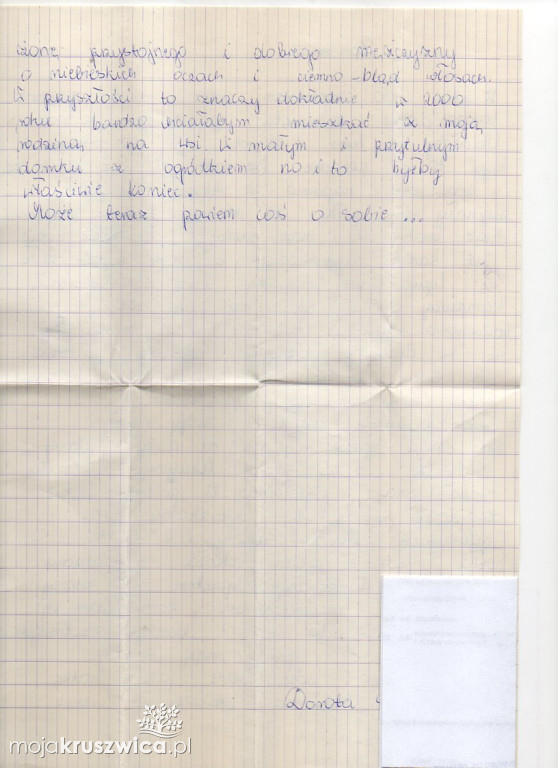 żoną przystojnego i dobrego mężczyzny
o niebieskich oczach i ciemno-bląd włosach.
W przyszłości to znaczy dokładnie w 2000
roku bardzo chciałabym mieszkać z moją
rodziną na wsi w małym i przytulnym
domku z ogródkiem no i to byłby
właściwie koniec.
Może teraz powiem coś o sobie...
Dorota
mojakruszwica.pl